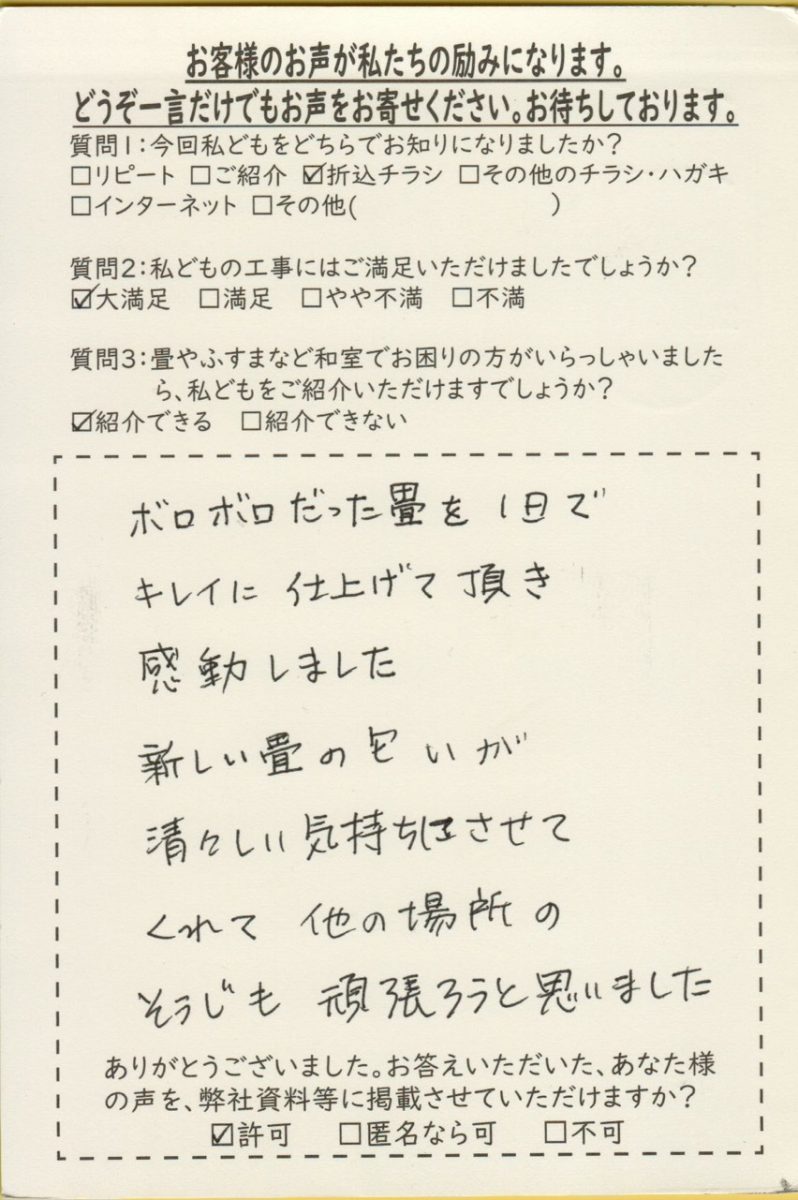 お客様のお声が私たちの励みになります。
どうぞ一言だけでもお声をお寄せください。お待ちしております。
質問1:今回私どもをどちらでお知りになりましたか?
□リピート □ご紹介 ☑折込チラシ □その他のチラシ・ハガキ
□インターネット □その他( )
質問2:私どもの工事にはご満足いただけましたでしょうか?
☑大満足 □満足 □やや不満 □不満
質問3:畳やふすまなど和室でお困りの方がいらっしゃいました
ら、私どもをご紹介いただけますでしょうか?
☑紹介できる □紹介できない
ボロボロだった畳を1日で
キレイに仕上げて頂き
感動しました
新しい畳の匂いが
清々しい気持ちにさせて
くれて他の場所の
そうじも頑張ろうと思いました
ありがとうございました。お答えいただいた、あなた様
の声を、弊社資料等に掲載させていただけますか?
☑許可 □匿名なら可 □不可